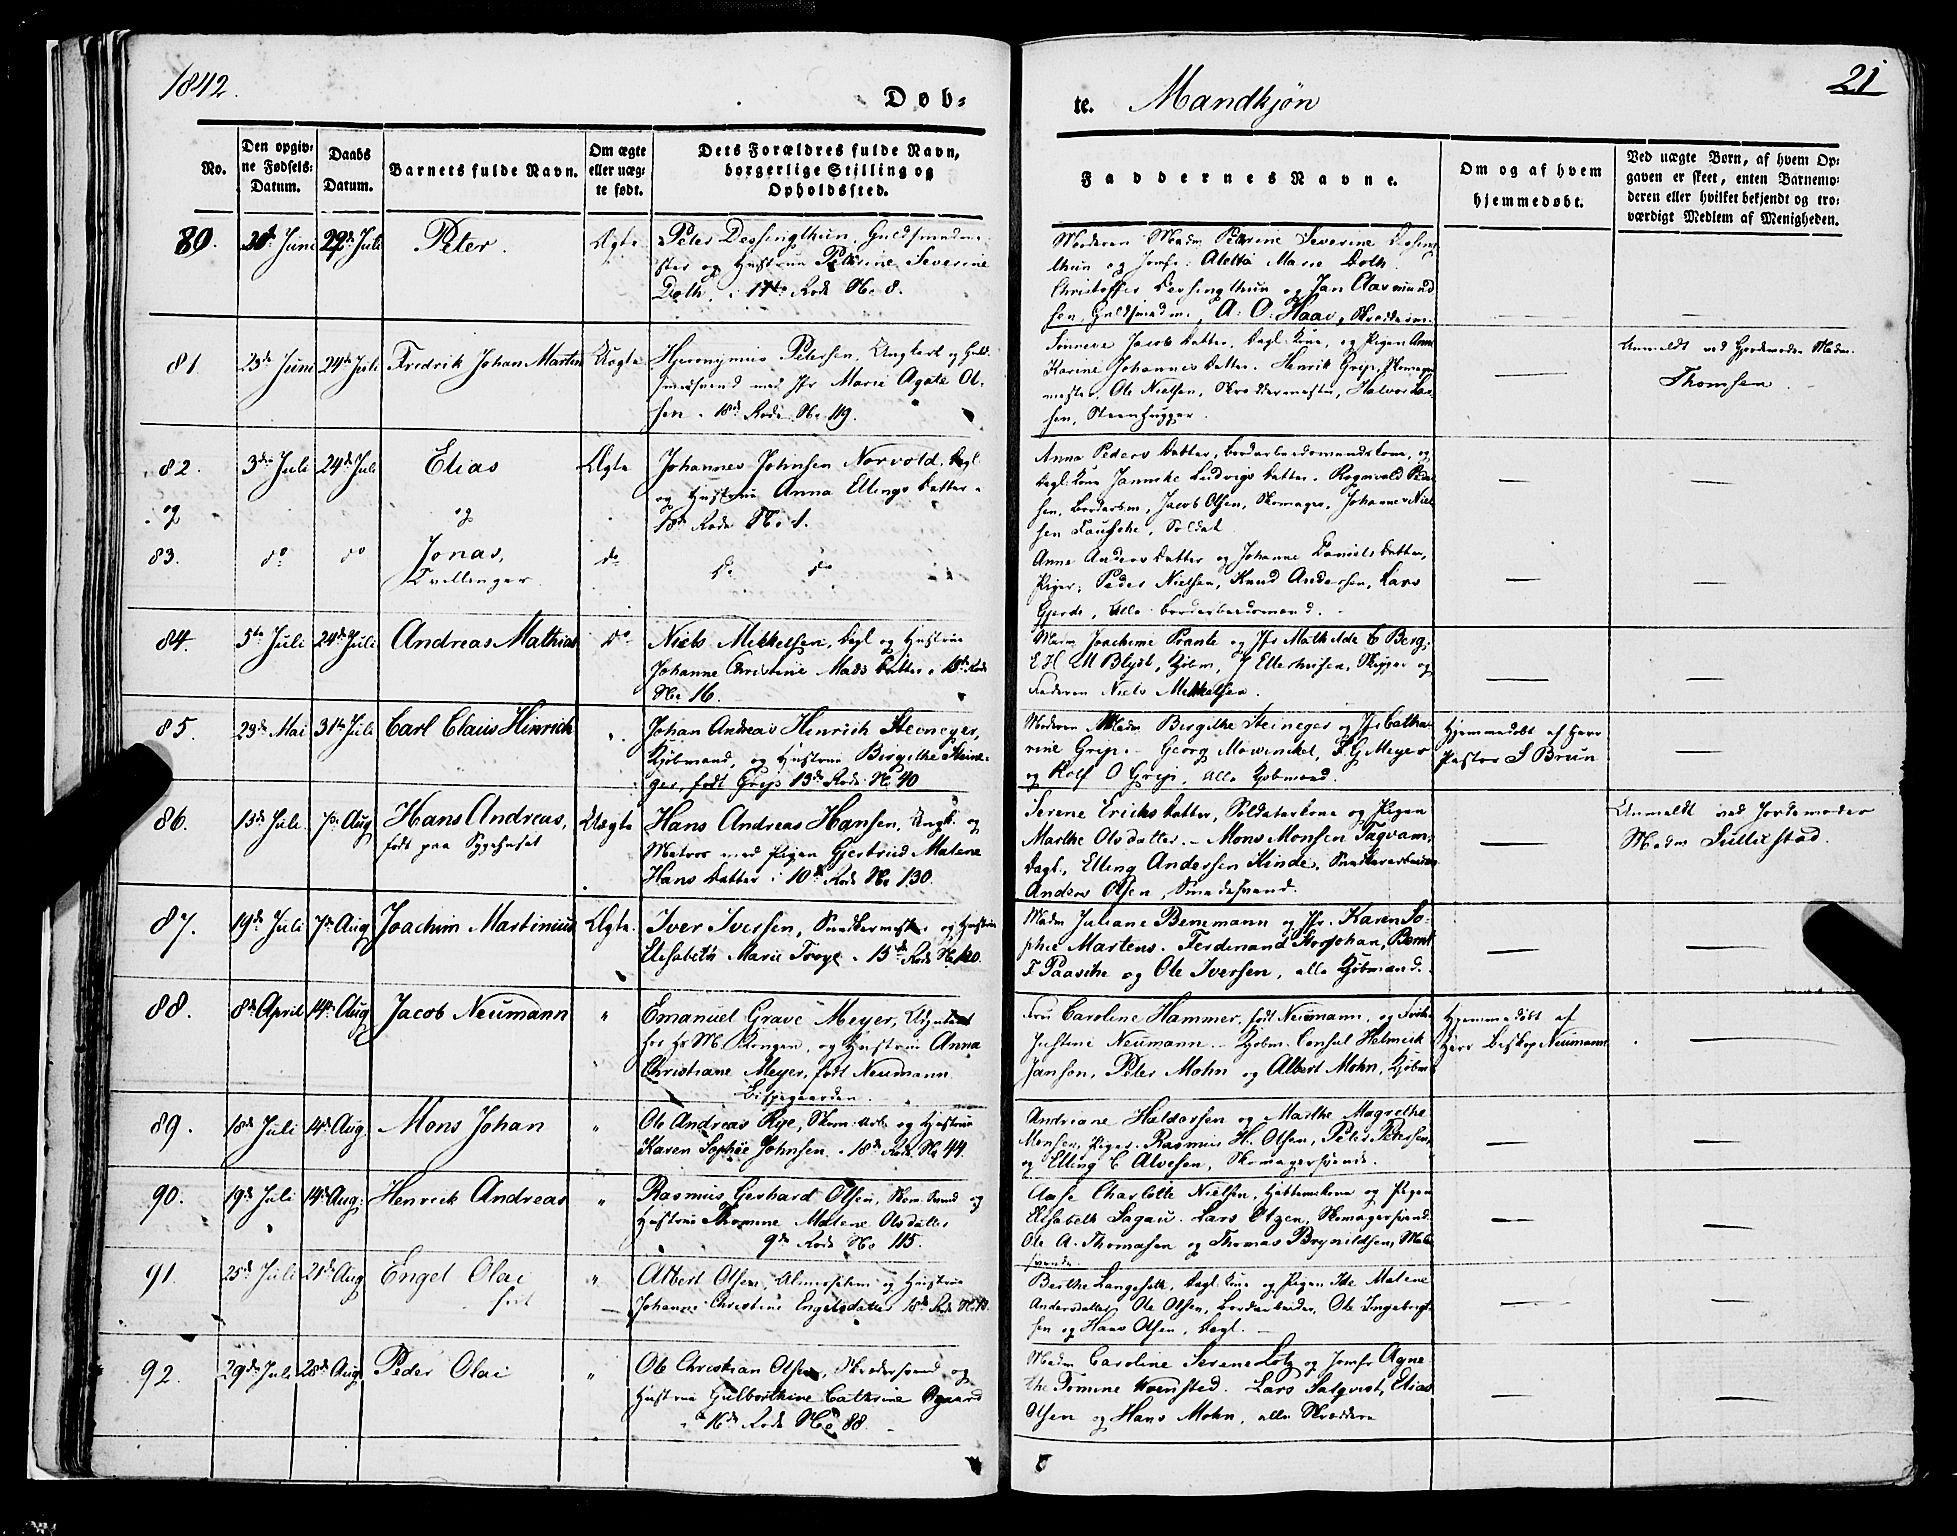 1842.
Døb-
te. Mandkjøn
21
No.
Den opgiv-
ne Fødsels-
Datum.
Daabs
Datum.
Barnets fulde Navn.
Om ægte
eller uæg-
te født.
Dets Forældres fulde Navn,
borgerlige Stilling og
Opholdssted.
Faddernes Navne.
Om og af hvem
hjemmedøbt.
Ved uægte Børn, af hvem Op-
gaven er skeet, enten Barnemo-
deren eller hvilket bekjendt og tro-
værdigt Medlem af Menigheden.
80. Juni Juli Peter. Ægte Peter
og Hustrue Petrine Severine
Døth, i 17de Rode No 8.
Moderen Madm Petrine Severine
og Jomfr: Aletta Marie Døth.
Christoffer og Jan Aasmund
sen, Guldsmedm, A: O: Haar, Skrædderm.
81. 23de Juni 24de Juli Fredrik Johan Martin Uægte Hieronymus Petersen, Ungkarl og Guld-
smedsvend med Jfr Marie Agate Ol-
sen. 18de Rode No 119.
Jacobsdatter, Dagl. Kone, og Pigen Anne
Karine Johannesdatter. Henrik Grip, Skomager
mester, Ole Nielsen, Skræddermester, Halvor Lar-
sen, Steenhugger.
Anmeldt ved Jordemoder Madm.
Thomsen.
82. 3die Juli 24de Juli Elias Ægte Johannes Johnsen Norvold, Dagl.
og Hustrue Anna Ellingsdatter.
18de Rode No 1.
Anna Pedersdatter, Bordarbeidsmandskone, og
Dagl. Kone Jannike Ludvigsdatter. Rognvald Peder
sen, Bordarbm, Jacob Olsen, Skomager, Johannes Niel
sen, Soldat.
og og
83. do do Jonas, do Do do
Tvillinger.
Anne Andersdatter og Johanne Danielsdatter,
Piger, Peder Nielsen, Knud Andersen, Lars
Gjerde, alle Bordarbeidsmænd.
84. 5te Juli 24de Juli Andreas Mathias do Niels Mikkelsen, Dagl og Hustrue
Johanne Christine Madsdatter. 18de Rode
No 16.
Madm Joachime Prante og Jfr Mathilde C Berg,
E H M Blydt, Kjøbm, J Ellerhusen, Skipper og
Faderen Niels Mikkelsen.
85. 29de Mai 31te Juli Carl Claus Hinrich Johan Andreas Hinrich Steineger,
Kjøbmand, og Hustrue Birgithe Steine-
ger, født Grip 13de Rode No 40
Moderen Madm Birgithe Steineger og Jfr Catha-
rine Grip. Georg Mowinckel, F G Meyer
og Rolf O Grip, alle Kjøbmænd.
Hjemmedøbt af Herr
Pastor S Brun
86. 13de Juli 7de Aug Hans Andreas, Uægte Hans Andreas Hansen, Ungk. og
født paa Sygehuset Matros med Pigen Gjertrud Malene
Hansdatter i 10de Rode No 130.
Serene Ericksdatter, Soldaterkone og Pigen
Marthe Olsdatter. Mons Monsen Tagvam,
Dagl., Elling Andersen Kinde,
Anders Olsen, Smedesvend.
Anmeldt ved Jordemoder
Madm Sullestad.
87. 19de Juli 7de Aug Joachim Martinius Ægte. Iver Iversen, Snedkermester og Hustrue
Elisabeth Marie Troye. 15de Rode No 120.
Madm Juliane Benemann og Jfr. Karen So-
phie Martens. Ferdinand Storjohan, Bernt
F Paasche og Ole Iversen, alle Kjøbmænd.
88. 8de April 14de Aug Jacob Neumann " Emanuel Grave Meyer, Adjutant
hos Hs M. Kongen, og Hustrue Anna
Christiane Meyer, født Neumann
Bispegaarden.
Fru Caroline Hammer, født Neumann, og Frøken
Justine Neumann. Kjøbm. Consul Helmich
Janson, Peter Mohn og Albert Mohn, Kjøbm
Hjemmedøbt af
Herr Biskop Neumann
89. 18de Juli 14de Aug. Mons Johan " Ole Andreas Rye, og Hustrue
Karen Sophie Johnsen. 18de Rode No 44.
Andreane Haldorsen og Marthe Magrethe
Monsen, Piger. Rasmus H. Olsen, Peter Petersen
og Elling C Alvesen, Skomagersvende.
90. 19de Juli 14de Aug. Henrick Andreas " Rasmus Gerhard Olsen, Skom. Svend og
Hustrue Thomine Malene Olsdatter
9de Rode No 115.
Aase Charlotte Nielsen, og Pigen
Elisabeth Sagau. Lars Olzen, Skomagersvend
Ole A. Thomasen og Thomas Brynildsen,
svende.
91. 25de Juli 21de Aug Engel Olai " Albert Olsen, og Hustrue
Johanne Christine Engelsdatter 18de Rode
Berthe Langesæth, Dagl. Kone og Pigen Ide Malene
Andersdatter, Ole Olsen, Bordarbeider, Ole Ingebrigt-
sen og Hans Olsen, Dagl.
92. 29de Juli 28de Aug Peder Olai " Ole Christian Olsen, Skrædersvend og
Hustrue Gulborthine Cathrine
16de Rode No 88.
Madm Caroline Serene Lotz og Jomfr Agne-
the Tomine Wensted. Lars Salqvist, Elias
Olsen og Hans Mohn, alle Skræddere